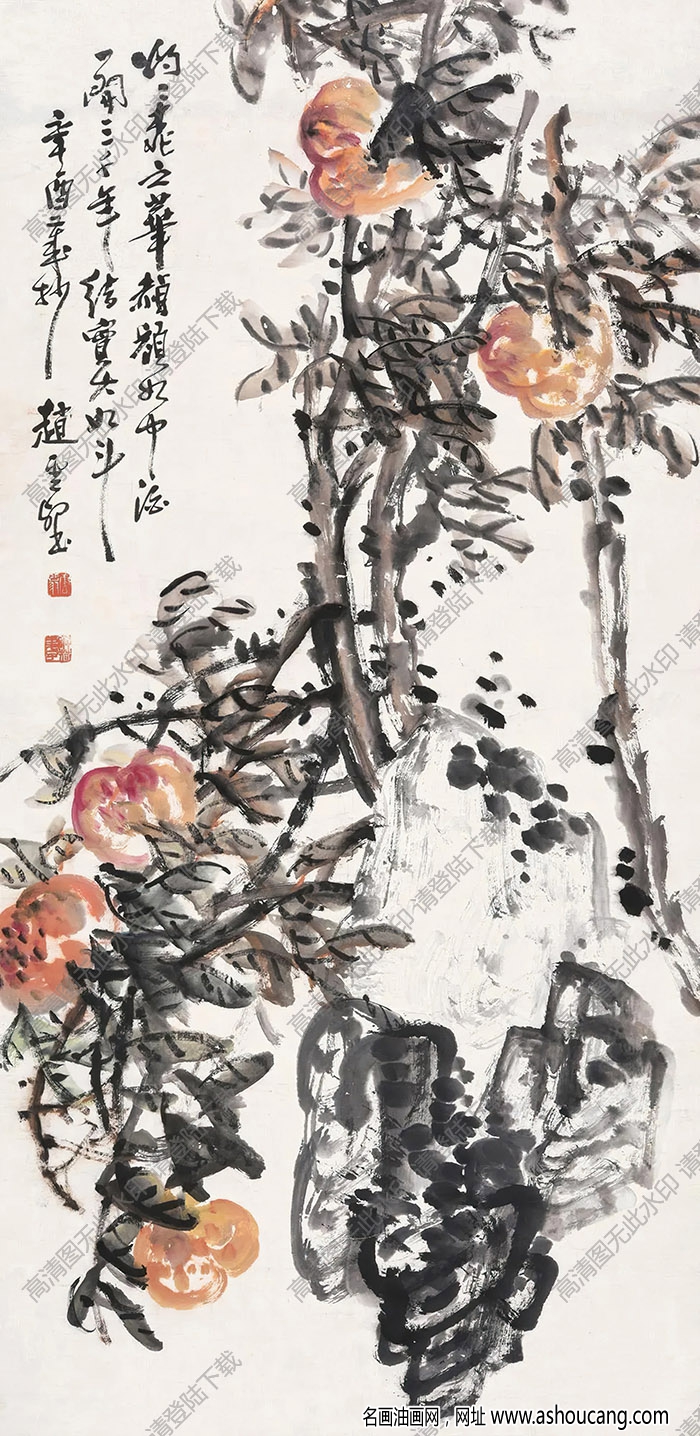 灼灼桃之華頳顔如中酒
一開三千年結實大如斗
辛酉歲抄
趙雲壑
高清图无此水印·请登陆下载
名画油画网，网址 www.ashoucang.com